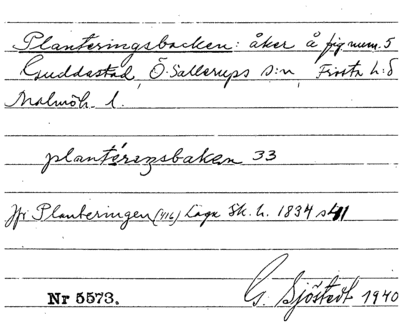 Planteringsbacken: åker å fig num. 5
Guddastad, Ö. Sallerups s:n, Frosta h:d
Malmöh. l.
plantérengsbakan 33
Jfr Planteringen (416) Laga sk. h. 1834 s 41
Nr 5573.
G. Sjöstedt 1940